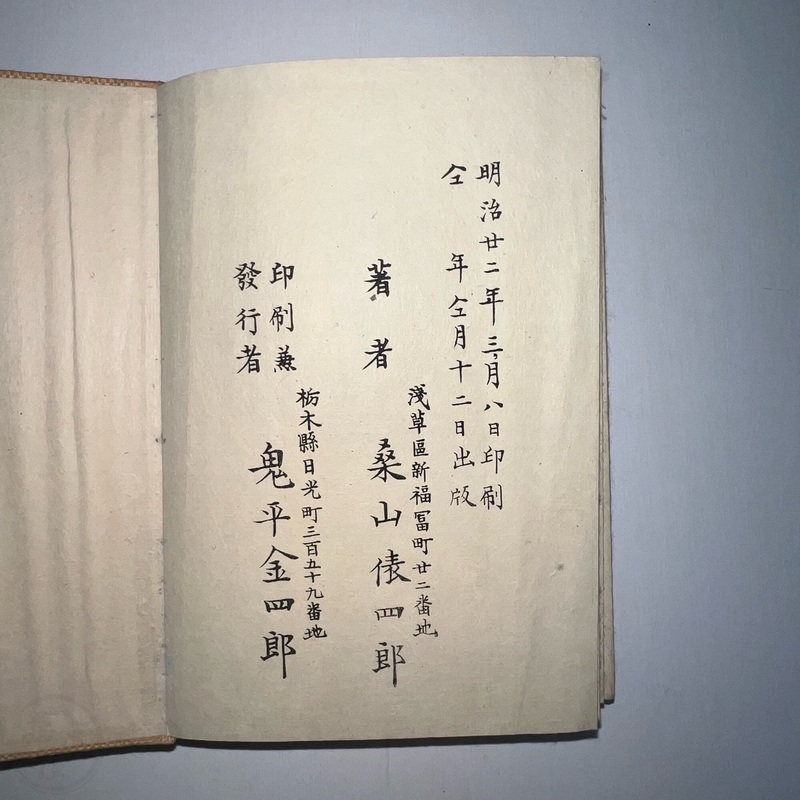 明治廿二年三月八日印刷
仝年仝月十二日出版
著者
淺草區新福冨町廿二番地
桑山俵四郎
印刷兼
發行者
栃木縣日光町三百五十九番地
鬼平金四郎